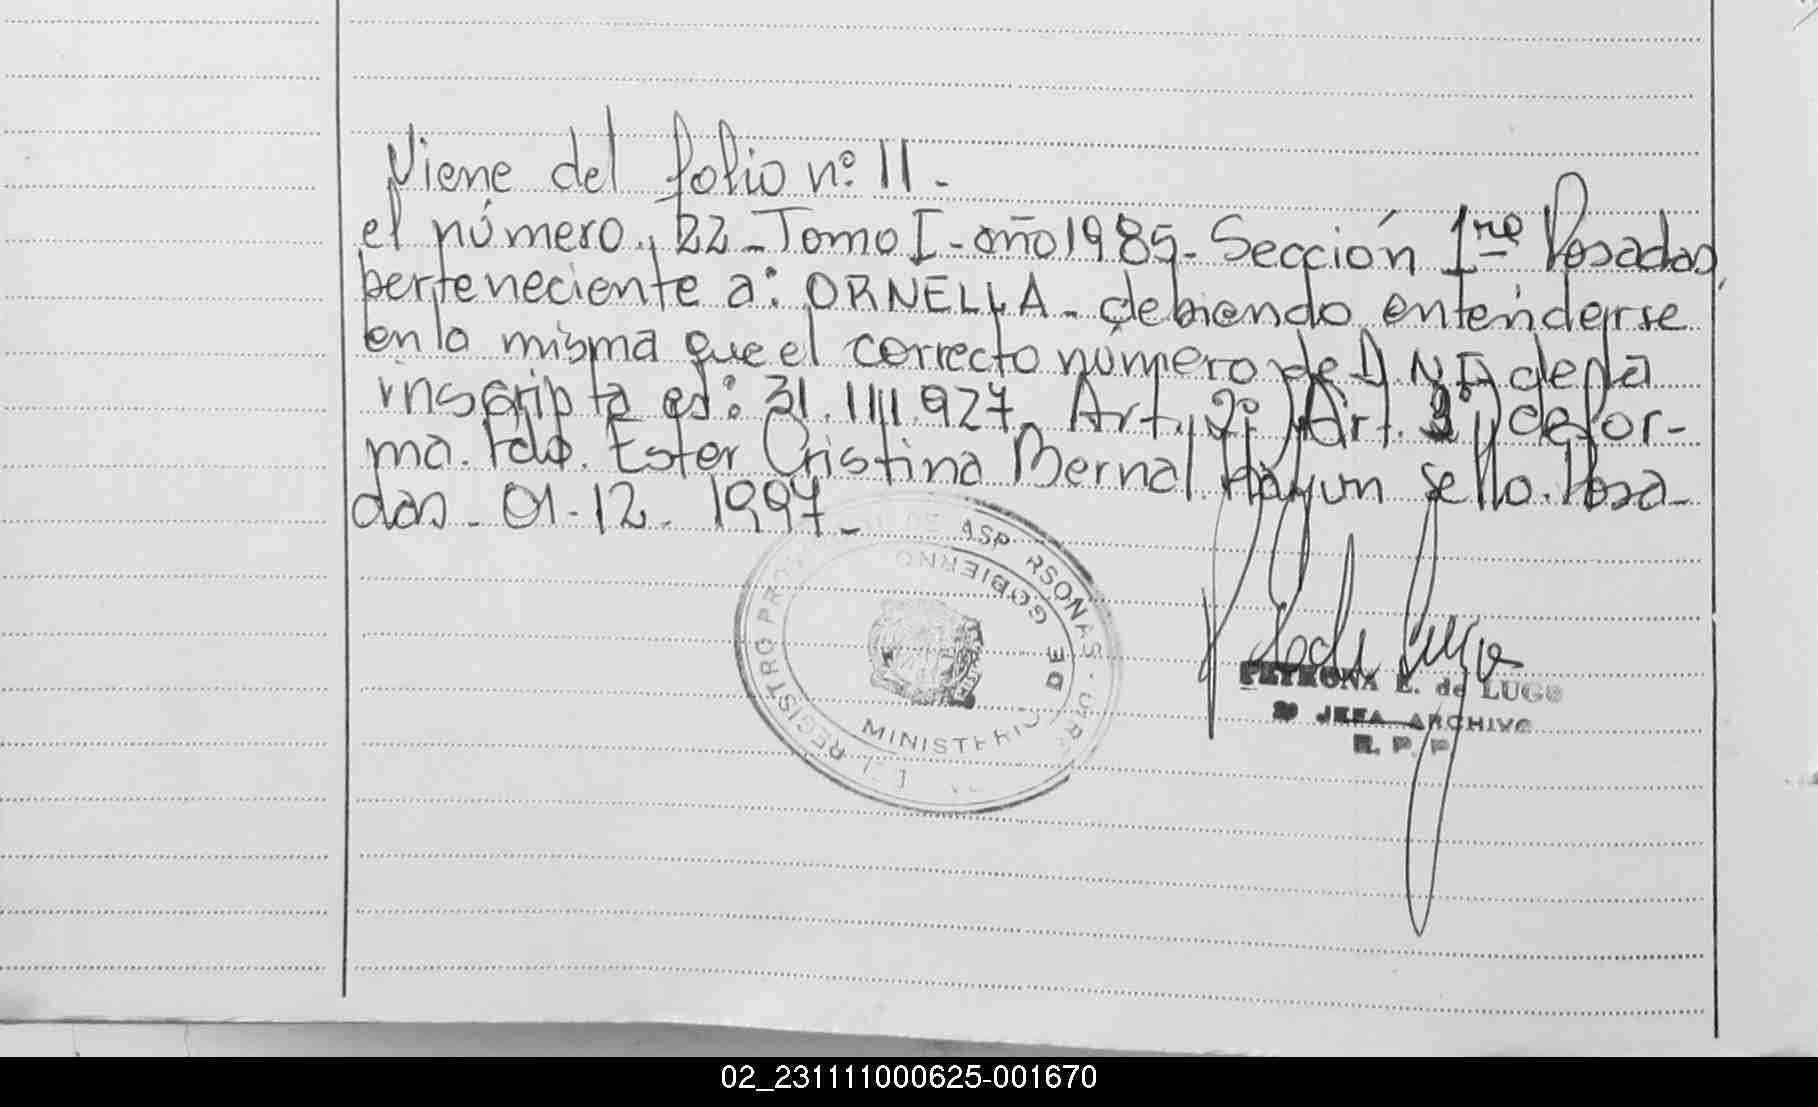 Viene del folio nº 11.
el número, 22 - Tomo I - año 1985 - Sección 1ra Posadas,
perteneciente a: ORNELLA - debiendo entenderse
en la misma que el correcto número de D.N.I. de la
inscripta es: 31.111.927. Art. 2º) Art. 3º) de for-
ma. Fdo. Ester Cristina Bernal Hayun sello. Posa-
das - 01-12-1997 -
REGISTRO PROV DE
MINISTERIO DE GOBIERNO
PETRONA E. de LUGO
JEFA ARCHIVO
R. P. P
02_231111000625-001670